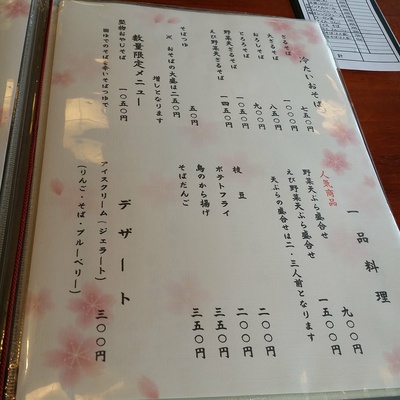 冷たいおそば
ざるそば 七五〇円
大ざるそば 一〇〇〇円
おろしそば 八五〇円
とろろそば 九〇〇円
野菜天ざるそば 一四五〇円
えび野菜天ざるそば 一五五〇円
そばつゆ 五〇円
※ おそばの大盛は二五〇円
増しとなります
数量限定メニュー
堅物おやじそば 一〇五〇円
田ゆでのそばを辛いそばつゆで
一品料理
人気商品
野菜天ぷら盛合せ 九〇〇円
えび野菜天ぷら盛合せ 一五〇〇円
天ぷらの盛合せは二・三人前となります
枝豆 二〇〇円
ポテトフライ 二〇〇円
鳥のから揚げ 三五〇円
そばだんご 三五〇円
デザート
アイスクリーム(ジェラート) 三〇〇円
(りんご・そば・ブルーベリー)